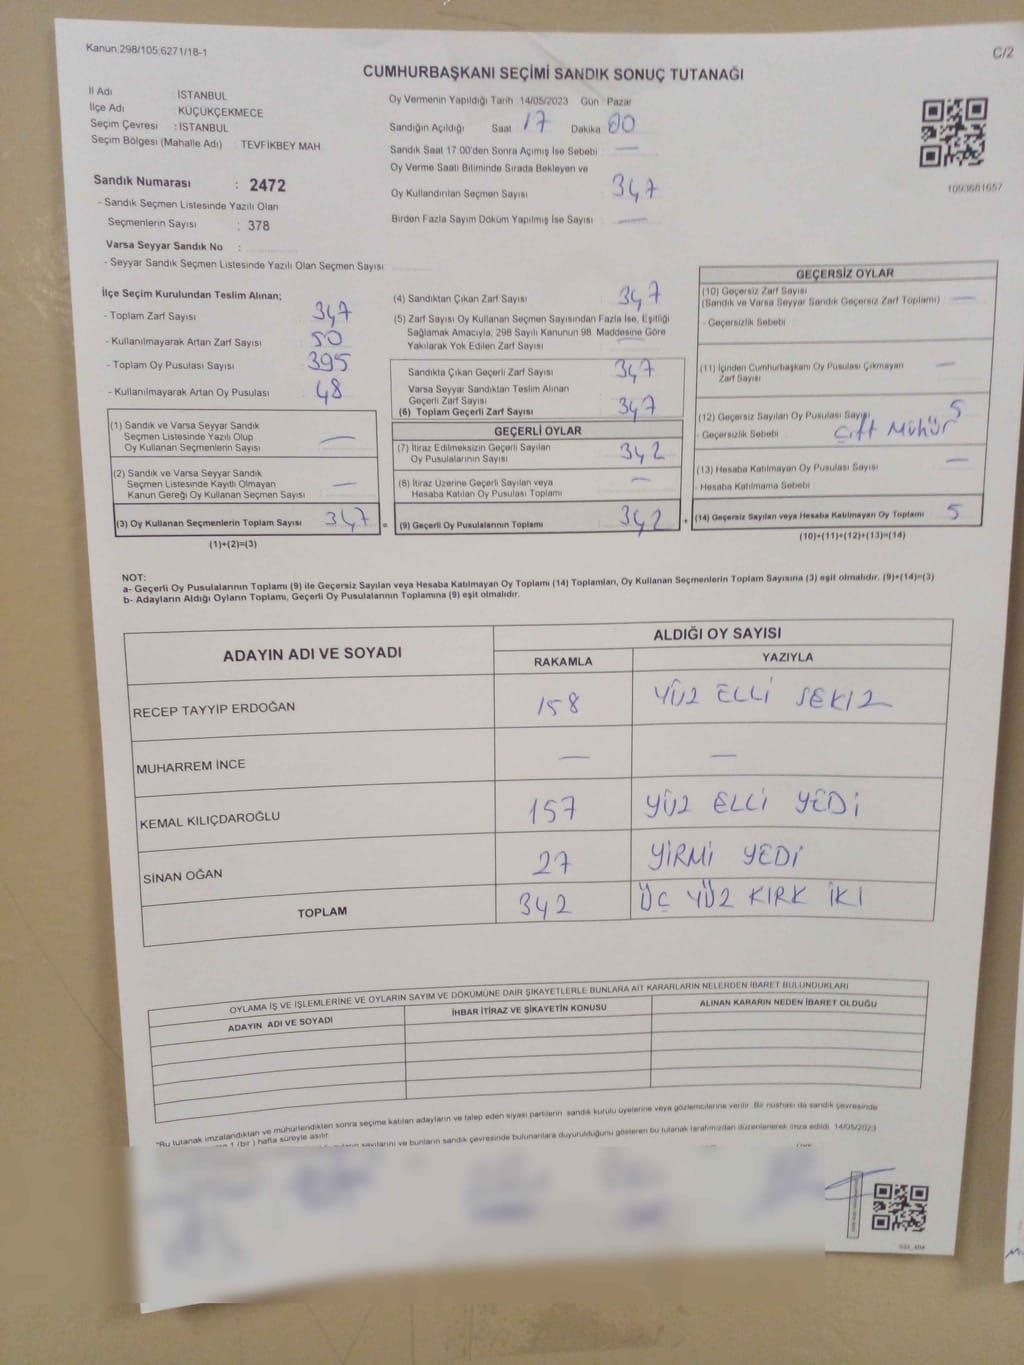 Kanun:298/105;6271/18-1
C/2
CUMHURBAŞKANI SEÇİMİ SANDIK SONUÇ TUTANAĞI
İl Adı İSTANBUL
İlçe Adı KÜÇÜKÇEKMECE
Seçim Çevresi : İSTANBUL
Seçim Bölgesi (Mahalle Adı) TEVFİKBEY MAH.
Sandık Numarası : 2472
- Sandık Seçmen Listesinde Yazılı Olan
Seçmenlerin Sayısı : 378
Varsa Seyyar Sandık No :
- Seyyar Sandık Seçmen Listesinde Yazılı Olan Seçmen Sayısı
Oy Vermenin Yapıldığı Tarih 14/05/2023 Gün : Pazar
Sandığın Açıldığı Saat 17 Dakika 00
Sandık Saat 17:00'den Sonra Açımış İse Sebebi —
Oy Verme Saati Bitiminde Sırada Bekleyen ve
Oy Kullandırılan Seçmen Sayısı : 347
Birden Fazla Sayım Döküm Yapılmış İse Sayısı : —
1093681657
İlçe Seçim Kurulundan Teslim Alınan;
- Toplam Zarf Sayısı : 347
- Kullanılmayarak Artan Zarf Sayısı : 50
- Toplam Oy Pusulası Sayısı : 395
- Kullanılmayarak Artan Oy Pusulası : 48
(1) Sandık ve Varsa Seyyar Sandık
Seçmen Listesinde Yazılı Olup
Oy Kullanan Seçmenlerin Sayısı —
(2) Sandık ve Varsa Seyyar Sandık
Seçmen Listesinde Kayıtlı Olmayan
Kanun Gereği Oy Kullanan Seçmen Sayısı —
(3) Oy Kullanan Seçmenlerin Toplam Sayısı 347 =
(1)+(2)=(3)
(4) Sandıktan Çıkan Zarf Sayısı : 347
(5) Zarf Sayısı Oy Kullanan Seçmen Sayısından Fazla İse, Eşitliği
Sağlamak Amacıyla, 298 Sayılı Kanunun 98. Maddesine Göre
Yakılarak Yok Edilen Zarf Sayısı —
Sandıkta Çıkan Geçerli Zarf Sayısı : 347
Varsa Seyyar Sandıktan Teslim Alınan
Geçerli Zarf Sayısı
(6) Toplam Geçerli Zarf Sayısı : 347
GEÇERLİ OYLAR
(7) İtiraz Edilmeksizin Geçerli Sayılan
Oy Pusulalarının Sayısı : 342
(8) İtiraz Üzerine Geçerli Sayılan veya
Hesaba Katılan Oy Pusulası Toplamı : —
(9) Geçerli Oy Pusulalarının Toplamı : 342 +
GEÇERSİZ OYLAR
(10) Geçersiz Zarf Sayısı
(Sandık ve Varsa Seyyar Sandık Geçersiz Zarf Toplamı) —
- Geçersizlik Sebebi
(11) İçinden Cumhurbaşkanı Oy Pusulası Çıkmayan
Zarf Sayısı —
(12) Geçersiz Sayılan Oy Pusulası Sayısı 5
- Geçersizlik Sebebi : çift Mühür
(13) Hesaba Katılmayan Oy Pusulası Sayısı —
- Hesaba Katılmama Sebebi
(14) Geçersiz Sayılan veya Hesaba Katılmayan Oy Toplamı 5
(10)+(11)+(12)+(13)=(14)
NOT:
a- Geçerli Oy Pusulalarının Toplamı (9) ile Geçersiz Sayılan veya Hesaba Katılmayan Oy Toplamı (14) Toplamları, Oy Kullanan Seçmenlerin Toplam Sayısına (3) eşit olmalıdır. (9)+(14)=(3)
b- Adayların Aldığı Oyların Toplamı, Geçerli Oy Pusulalarının Toplamına (9) eşit olmalıdır.
ADAYIN ADI VE SOYADI
ALDIĞI OY SAYISI
RAKAMLA YAZIYLA
RECEP TAYYİP ERDOĞAN 158 YÜZ ELLİ SEKİZ
MUHARREM İNCE — —
KEMAL KILIÇDAROĞLU 157 YÜZ ELLİ YEDİ
SİNAN OĞAN 27 YİRMİ YEDİ
TOPLAM 342 ÜÇ YÜZ KIRK İKİ
OYLAMA İŞ VE İŞLEMLERİNE VE OYLARIN SAYIM VE DÖKÜMÜNE DAİR ŞİKAYETLERLE BUNLARA AİT KARARLARIN NELERDEN İBARET BULUNDUKLARI
ADAYIN ADI VE SOYADI İHBAR İTİRAZ VE ŞİKAYETİN KONUSU ALINAN KARARIN NEDEN İBARET OLDUĞU
"Bu tutanak imzalandıktan ve mühürlendikten sonra seçime katılan adayların ve talep eden siyasi partilerin sandık kurulu üyelerine veya gözlemcilerine verilir. Bir nüshası da sandık çevresinde
1 (bir) hafta süreyle asılır.
sayılarını ve bunların sandık çevresinde bulunanlara duyurulduğunu gösteren bu tutanak tarafımızdan düzenlenerek imza edildi. 14/05/2023